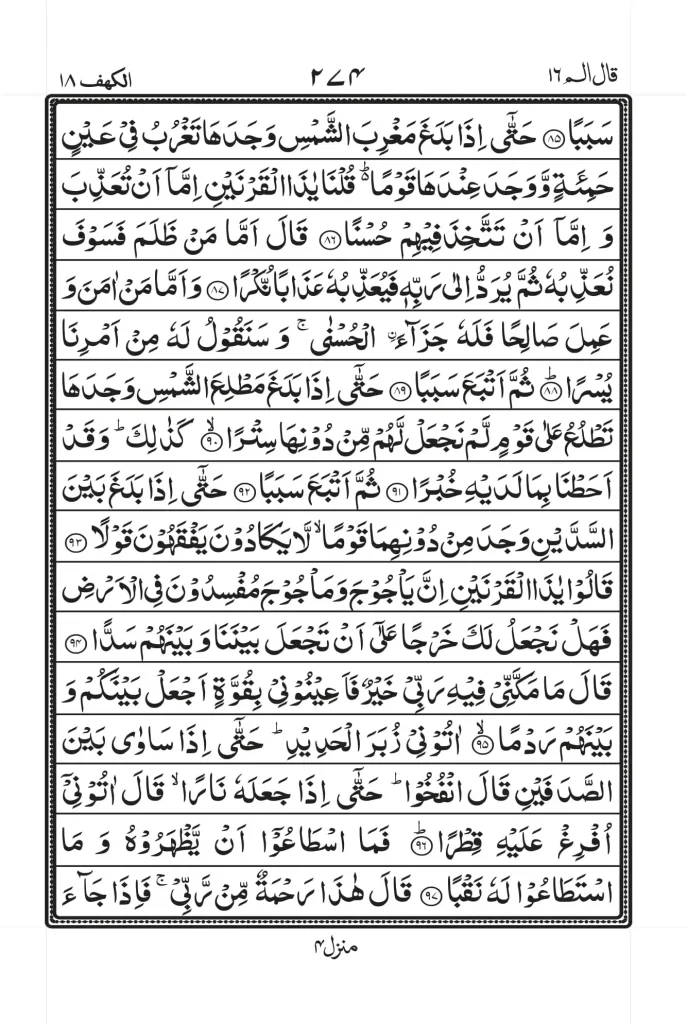 قال الم ١٦ ٢٧٤ الكهف ١٨
سَبَبًا ۝٨٥ حَتّٰۤى اِذَا بَلَغَ مَغْرِبَ الشَّمْسِ وَجَدَهَا تَغْرُبُ فِیْ عَیْنٍ
حَمِئَةٍ وَّ وَجَدَ عِنْدَهَا قَوْمًا ۬ؕ قُلْنَا یٰذَا الْقَرْنَیْنِ اِمَّاۤ اَنْ تُعَذِّبَ
وَ اِمَّاۤ اَنْ تَتَّخِذَ فِیْهِمْ حُسْنًا ۝٨٦ قَالَ اَمَّا مَنْ ظَلَمَ فَسَوْفَ
نُعَذِّبُهٗ ثُمَّ یُرَدُّ اِلٰى رَبِّهٖ فَیُعَذِّبُهٗ عَذَابًا نُّكْرًا ۝٨٧ وَ اَمَّا مَنْ اٰمَنَ وَ
عَمِلَ صَالِحًا فَلَهٗ جَزَآءَ ࣙالْحُسْنٰى ۚ وَ سَنَقُوْلُ لَهٗ مِنْ اَمْرِنَا
یُسْرًا ۝٨٨ؕ ثُمَّ اَتْبَعَ سَبَبًا ۝٨٩ حَتّٰۤى اِذَا بَلَغَ مَطْلِعَ الشَّمْسِ وَجَدَهَا
تَطْلُعُ عَلٰى قَوْمٍ لَّمْ نَجْعَلْ لَّهُمْ مِّنْ دُوْنِهَا سِتْرًا ۝٩٠ۙ كَذٰلِكَ ؕ وَ قَدْ
اَحَطْنَا بِمَا لَدَیْهِ خُبْرًا ۝٩١ ثُمَّ اَتْبَعَ سَبَبًا ۝٩٢ حَتّٰۤى اِذَا بَلَغَ بَیْنَ
السَّدَّیْنِ وَجَدَ مِنْ دُوْنِهِمَا قَوْمًا ۙ لَّا یَكَادُوْنَ یَفْقَهُوْنَ قَوْلًا ۝٩٣
قَالُوْا یٰذَا الْقَرْنَیْنِ اِنَّ یَاْجُوْجَ وَ مَاْجُوْجَ مُفْسِدُوْنَ فِی الْاَرْضِ
فَهَلْ نَجْعَلُ لَكَ خَرْجًا عَلٰۤى اَنْ تَجْعَلَ بَیْنَنَا وَ بَیْنَهُمْ سَدًّا ۝٩٤
قَالَ مَا مَكَّنِّیْ فِیْهِ رَبِّیْ خَیْرٌ فَاَعِیْنُوْنِیْ بِقُوَّةٍ اَجْعَلْ بَیْنَكُمْ وَ
بَیْنَهُمْ رَدْمًا ۝٩٥ۙ اٰتُوْنِیْ زُبَرَ الْحَدِیْدِ ؕ حَتّٰۤى اِذَا سَاوٰى بَیْنَ
الصَّدَفَیْنِ قَالَ انْفُخُوْا ؕ حَتّٰۤى اِذَا جَعَلَهٗ نَارًا ۙ قَالَ اٰتُوْنِیْۤ
اُفْرِغْ عَلَیْهِ قِطْرًا ۝٩٦ؕ فَمَا اسْطَاعُوْۤا اَنْ یَّظْهَرُوْهُ وَ مَا
اسْتَطَاعُوْا لَهٗ نَقْبًا ۝٩٧ قَالَ هٰذَا رَحْمَةٌ مِّنْ رَّبِّیْ ۚ فَاِذَا جَآءَ
منزل ٤